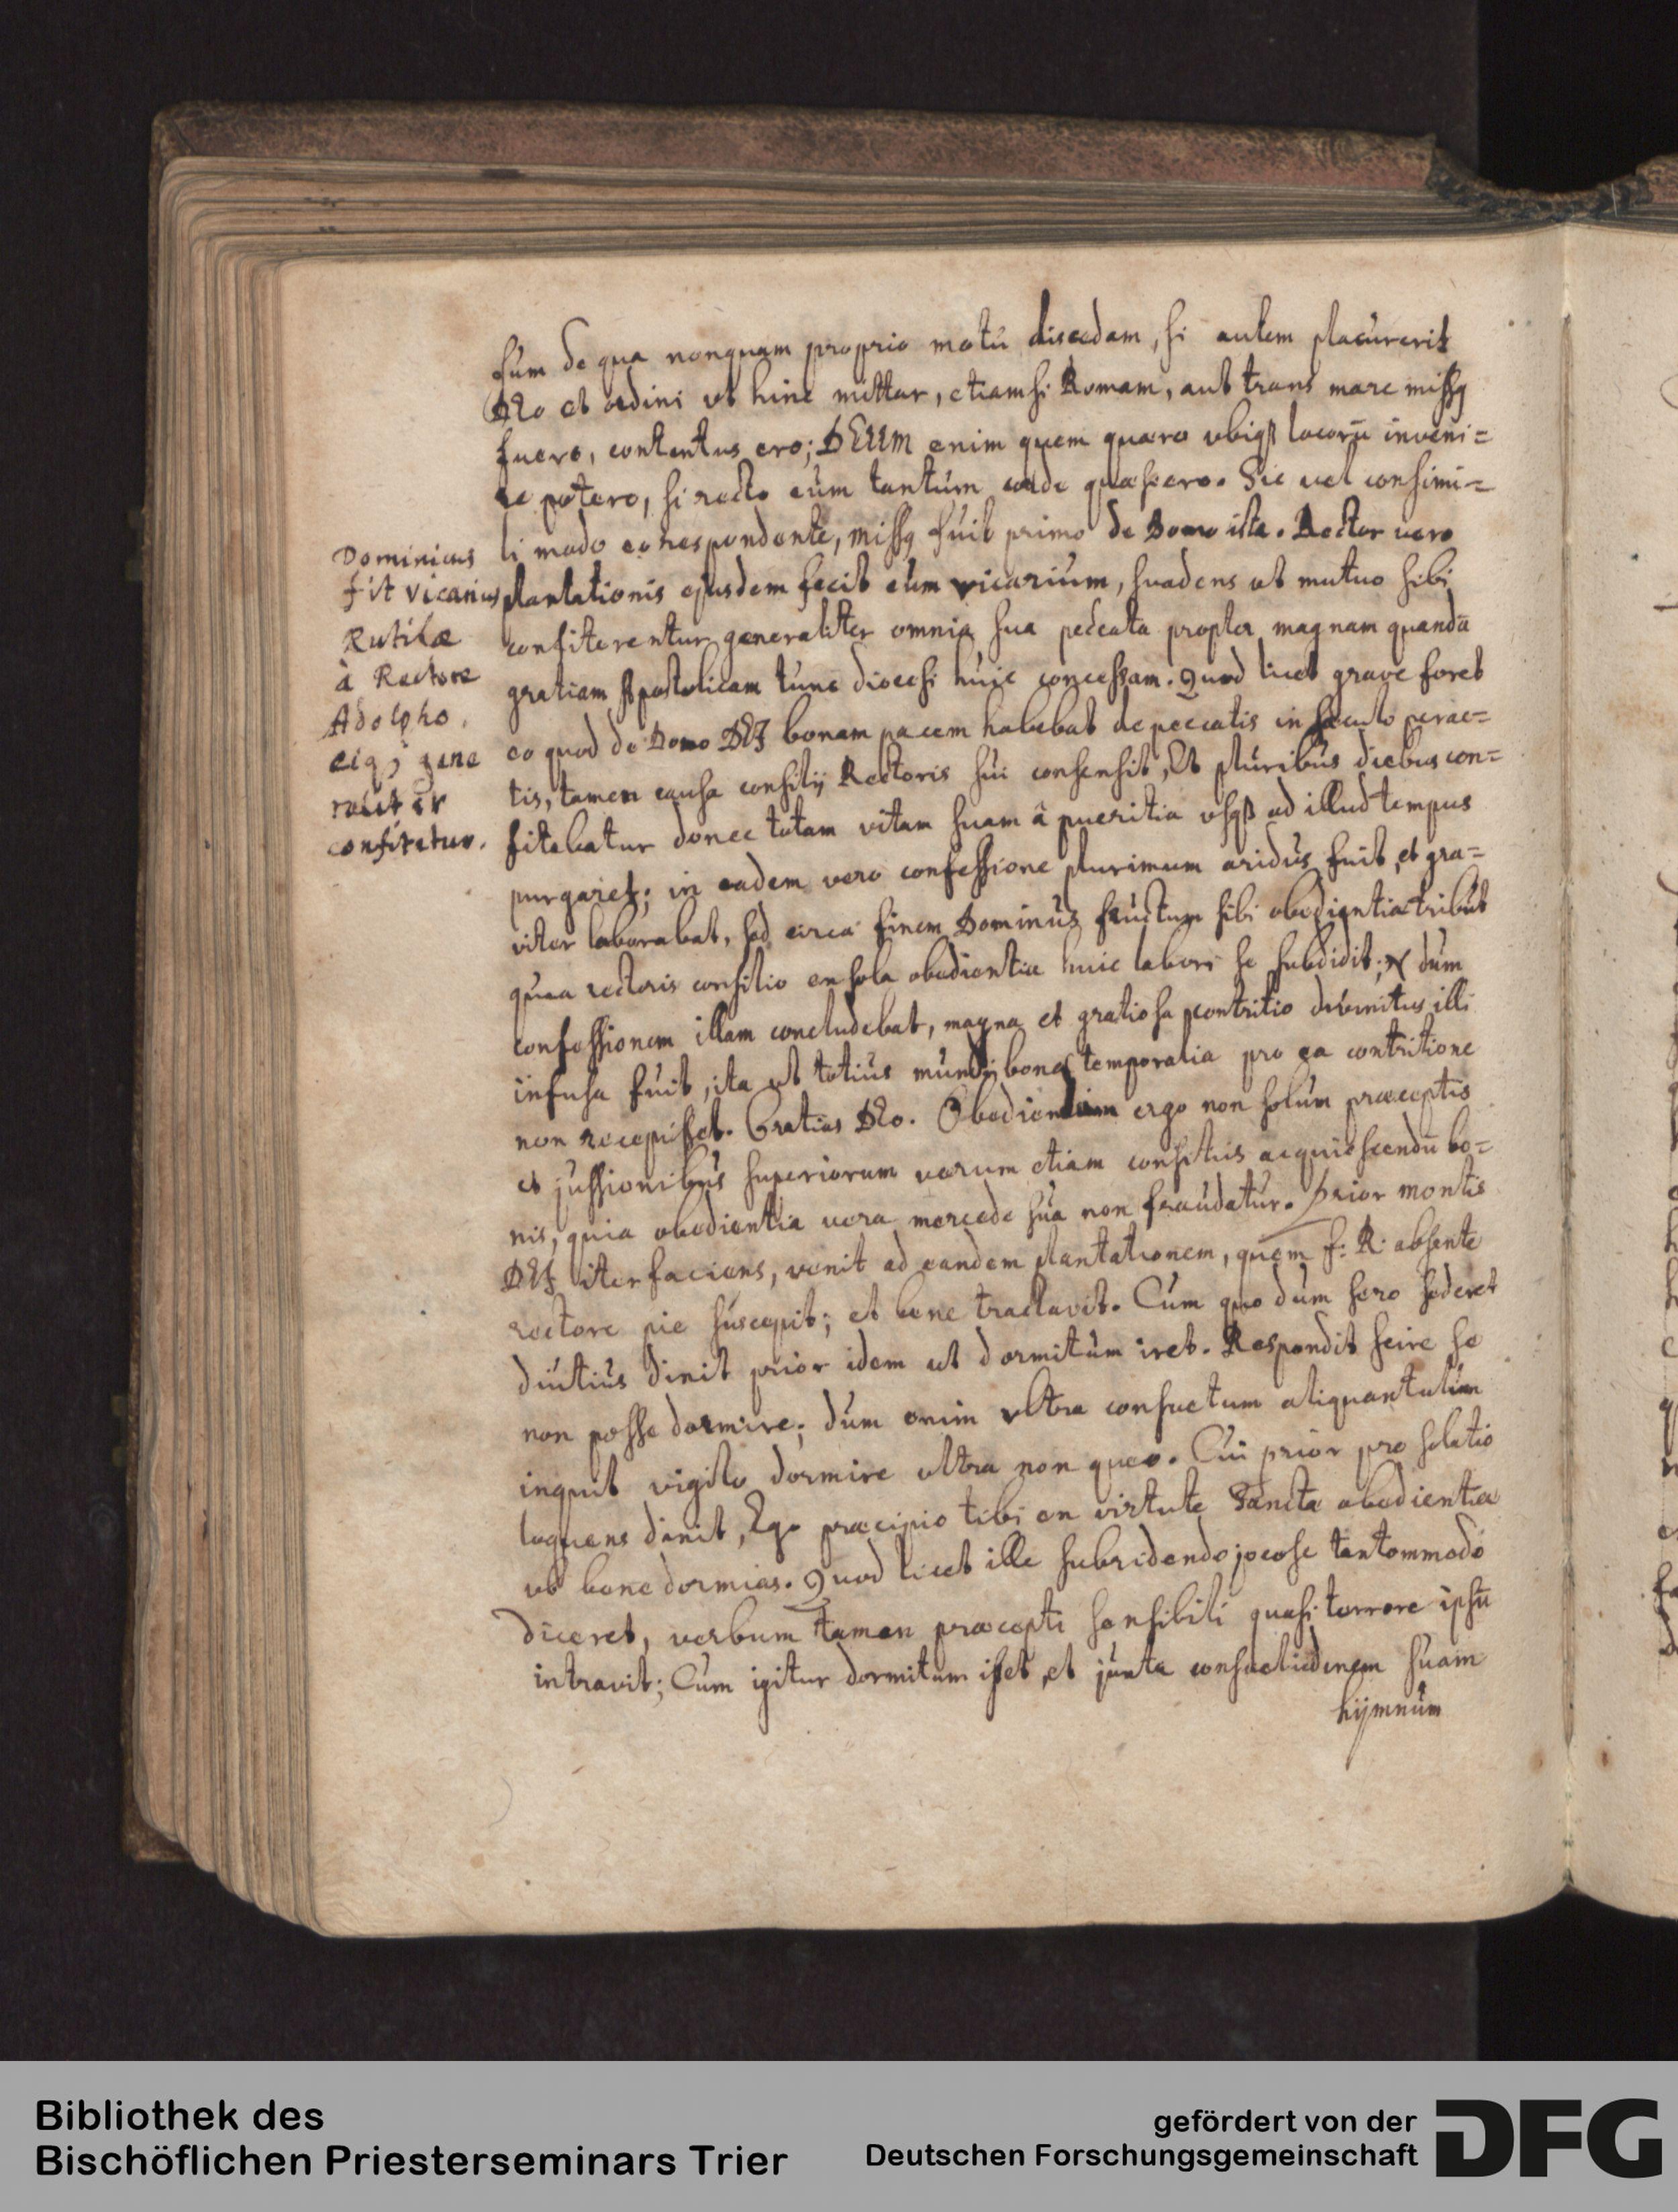 sum de qua nonquam proprio motu discedam, si autem placuererit
DEo et ordini ut hinc mittar, etiam si Romam, aut trans mare missq
fuero, contentus ero; DEUM enim quem quæro ubiqß locorū inveni=
re potero, si recto eum tantum corde quæsiero. Sic vel consimi=
li modo eo respondente, missq fuit primo de Domo ista. Rector vero
plantationis ejusdem fecit eum vicarium, suadens ut mutuo sibi
confiterentur generaliter omnia sua peccata propter magnam quandā
gratiam Apostolicam tunc diœcesi huic concessam. Quod licet grave foret
eo quod de Domo DEI bonam pacem habebat de peccatis in sæculo perac=
tis, tamen causa consilij Rectoris sui consensit, Et pluribus diebus con=
fitebatur donec totam vitam suam â pueritia usqß ad illud tempus
purgaret; in eadem vero confessione plurimum aridus fuit, et gra=
viter laborabat, sed circa finem Dominus fructum sibi obedientiæ tribuit
quia rectoris consilio ex sola obedientia huic labori se subdidit; et dum
confessionem illam concludebat, magna et gratiosa contritio divinitus illi
infusa fuit, ita ut totius mundi bona temporalia pro ea contritione
non recepisset. Gratias DEo. Obedientiam ergo non solum præceptis
et jussionibus superiorum verum etiam consiliis acquiescendū bo=
nis, quia obedientia vera mercede sua non fraudatur. Prior montis
DEI iter faciens, venit ad eandem plantationem, quem f: R: absente
rectore pie suscepit; et bene tractavit. Cum quo dum sero sederet
diutius dixit prior idem ut dormitum iret. Respondit scire se
non posse dormire; dum enim ultra consuetum aliquantulum
inquit vigilo dormire ultra non queo. Cui prior pro solatio
loquens dixit, Ego præcipio tibi en virtute Sanctæ obedientiæ
ut bene dormias. Quod licet ille subridendo jocose tantommodo
diceret, verbum tamen præcepti sensibili quasi terrore ipsū
intravit; Cum igitur dormitum isset, et juxta consuetudinem suam
hijmnum
Dominicus
fit vicarius
Rutilæ
à Rectore
Adolpho.
eiq; gene
raliter
confitetur.
Bibliothek des
Bischöflichen Priesterseminars Trier
gefördert von der
Deutschen Forschungsgemeinschaft
DFG